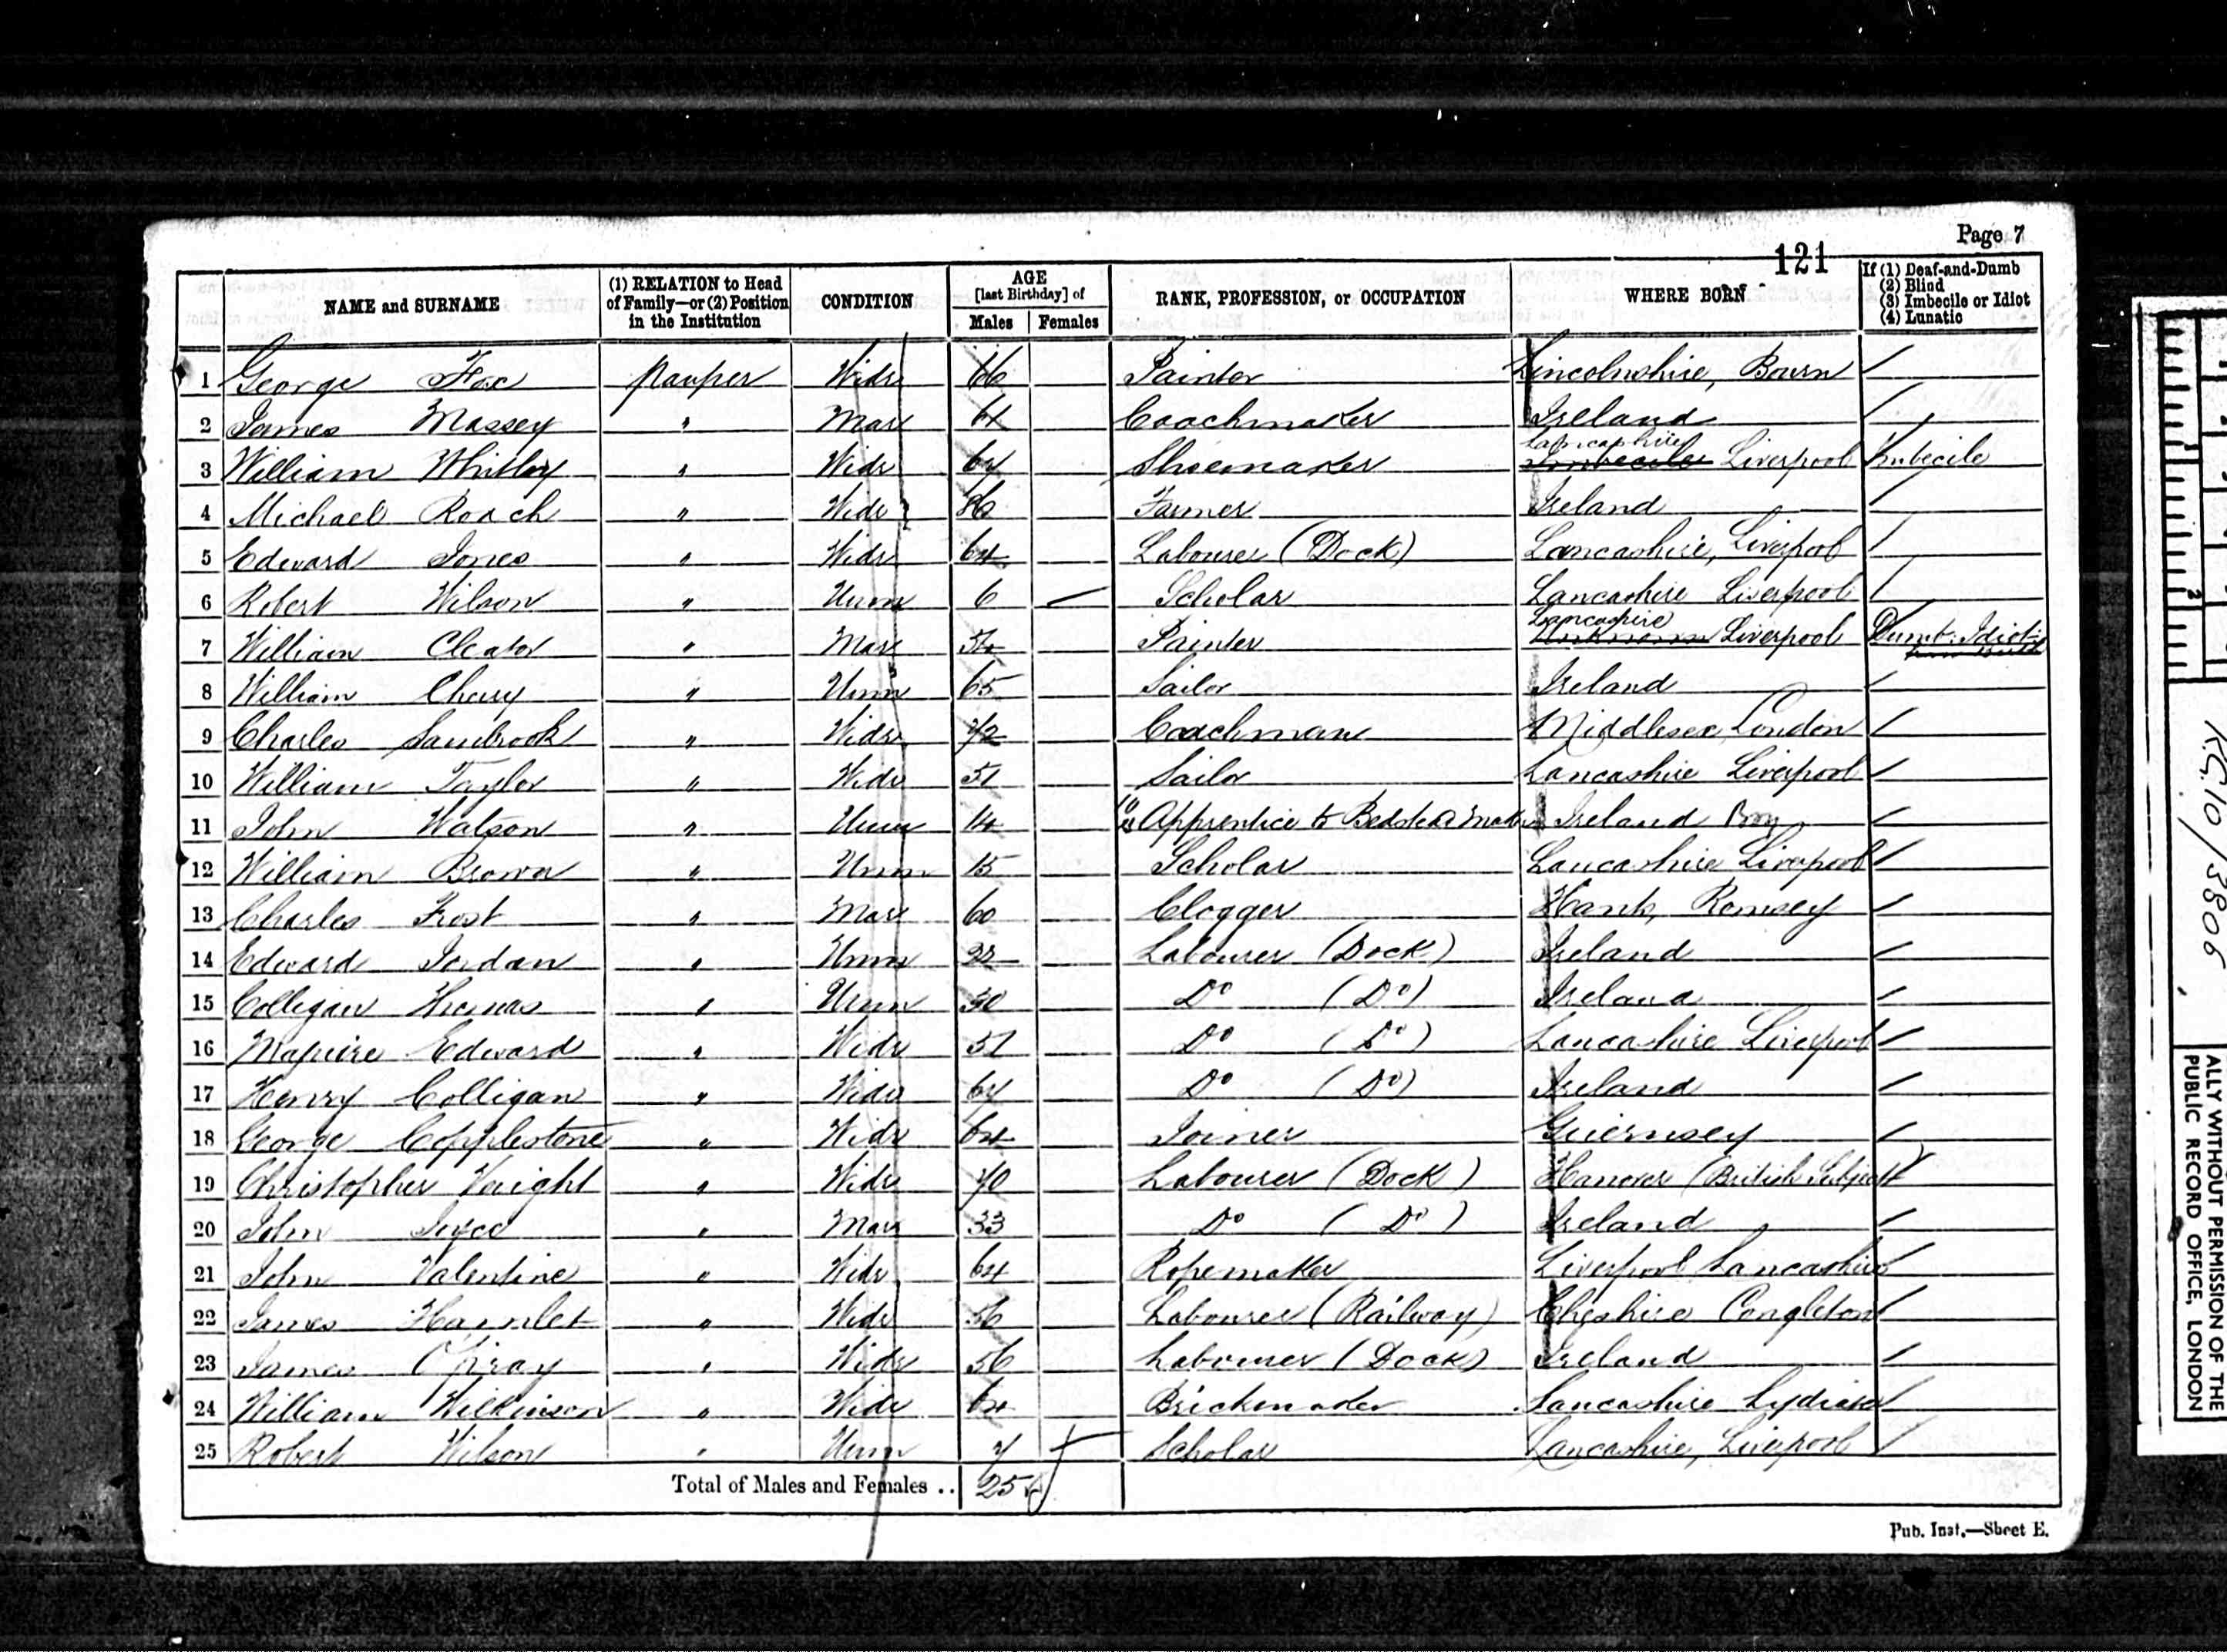 Page 7
121
NAME and SURNAME (1) RELATION to Head of Family—or (2) Position in the Institution CONDITION AGE [last Birthday] of Males Females RANK, PROFESSION, or OCCUPATION WHERE BORN If (1) Deaf-and-Dumb (2) Blind (3) Imbecile or Idiot (4) Lunatic
1 George Fox pauper Widr 66 Painter Lincolnshire, Bourn
2 James Massey " Mar Coachmaker Ireland
3 William Whitley " Widr 64 Shoemaker Lancashire Imbecile Liverpool Imbecile
4 Michael Roach " Widr 86 Farmer Ireland
5 Edward Jones " Widr 64 Labourer (Dock) Lancashire, Liverpool
6 Robert Wilson " Unm 6 Scholar Lancashire Liverpool
7 William Cleator " Mar Painter Lancashire Unknown Liverpool Dumb. Idiot from Birth
8 William Chery " Unm 65 Sailor Ireland
9 Charles Sambrook " Widr 72 Coachman Middlesex London
10 William Taylor " Widr 51 Sailor Lancashire Liverpool
11 John Watson " Unm 14 Apprentice to Bedstead Maker Ireland
12 William Brown " Unm 15 Scholar Lancashire Liverpool
13 Charles Frost " Mar 60 Clogger Hants, Romsey
14 Edward Jordan " Unm Labourer (Dock) Ireland
15 Colligan Thomas " Unm Do (Do) Ireland
16 Maguire Edward " Widr 51 Do (Do) Lancashire Liverpool
17 Henry Colligan " Widr 64 Do (Do) Ireland
18 George Copplestone " Widr 64 Joiner Guernsey
19 Christopher Vaight " Widr 70 Labourer (Dock) Hanover (British Subject)
20 John Joyce " Mar 33 Do (Do) Ireland
21 John Valentine " Widr 64 Ropemaker Liverpool Lancashire
22 James Hamlet " Widr 56 Labourer (Railway) Cheshire Congleton
23 James " Widr 56 Labourer (Dock) Ireland
24 William Wilkinson " Widr Brickmaker Lancashire Lydiate
25 Robert Wilson " Unm 7 Scholar Lancashire, Liverpool
Total of Males and Females .. 25
Pub. Inst.—Sheet E.
R.G. 10/3806
ALLY WITHOUT PERMISSION OF THE
PUBLIC RECORD OFFICE, LONDON